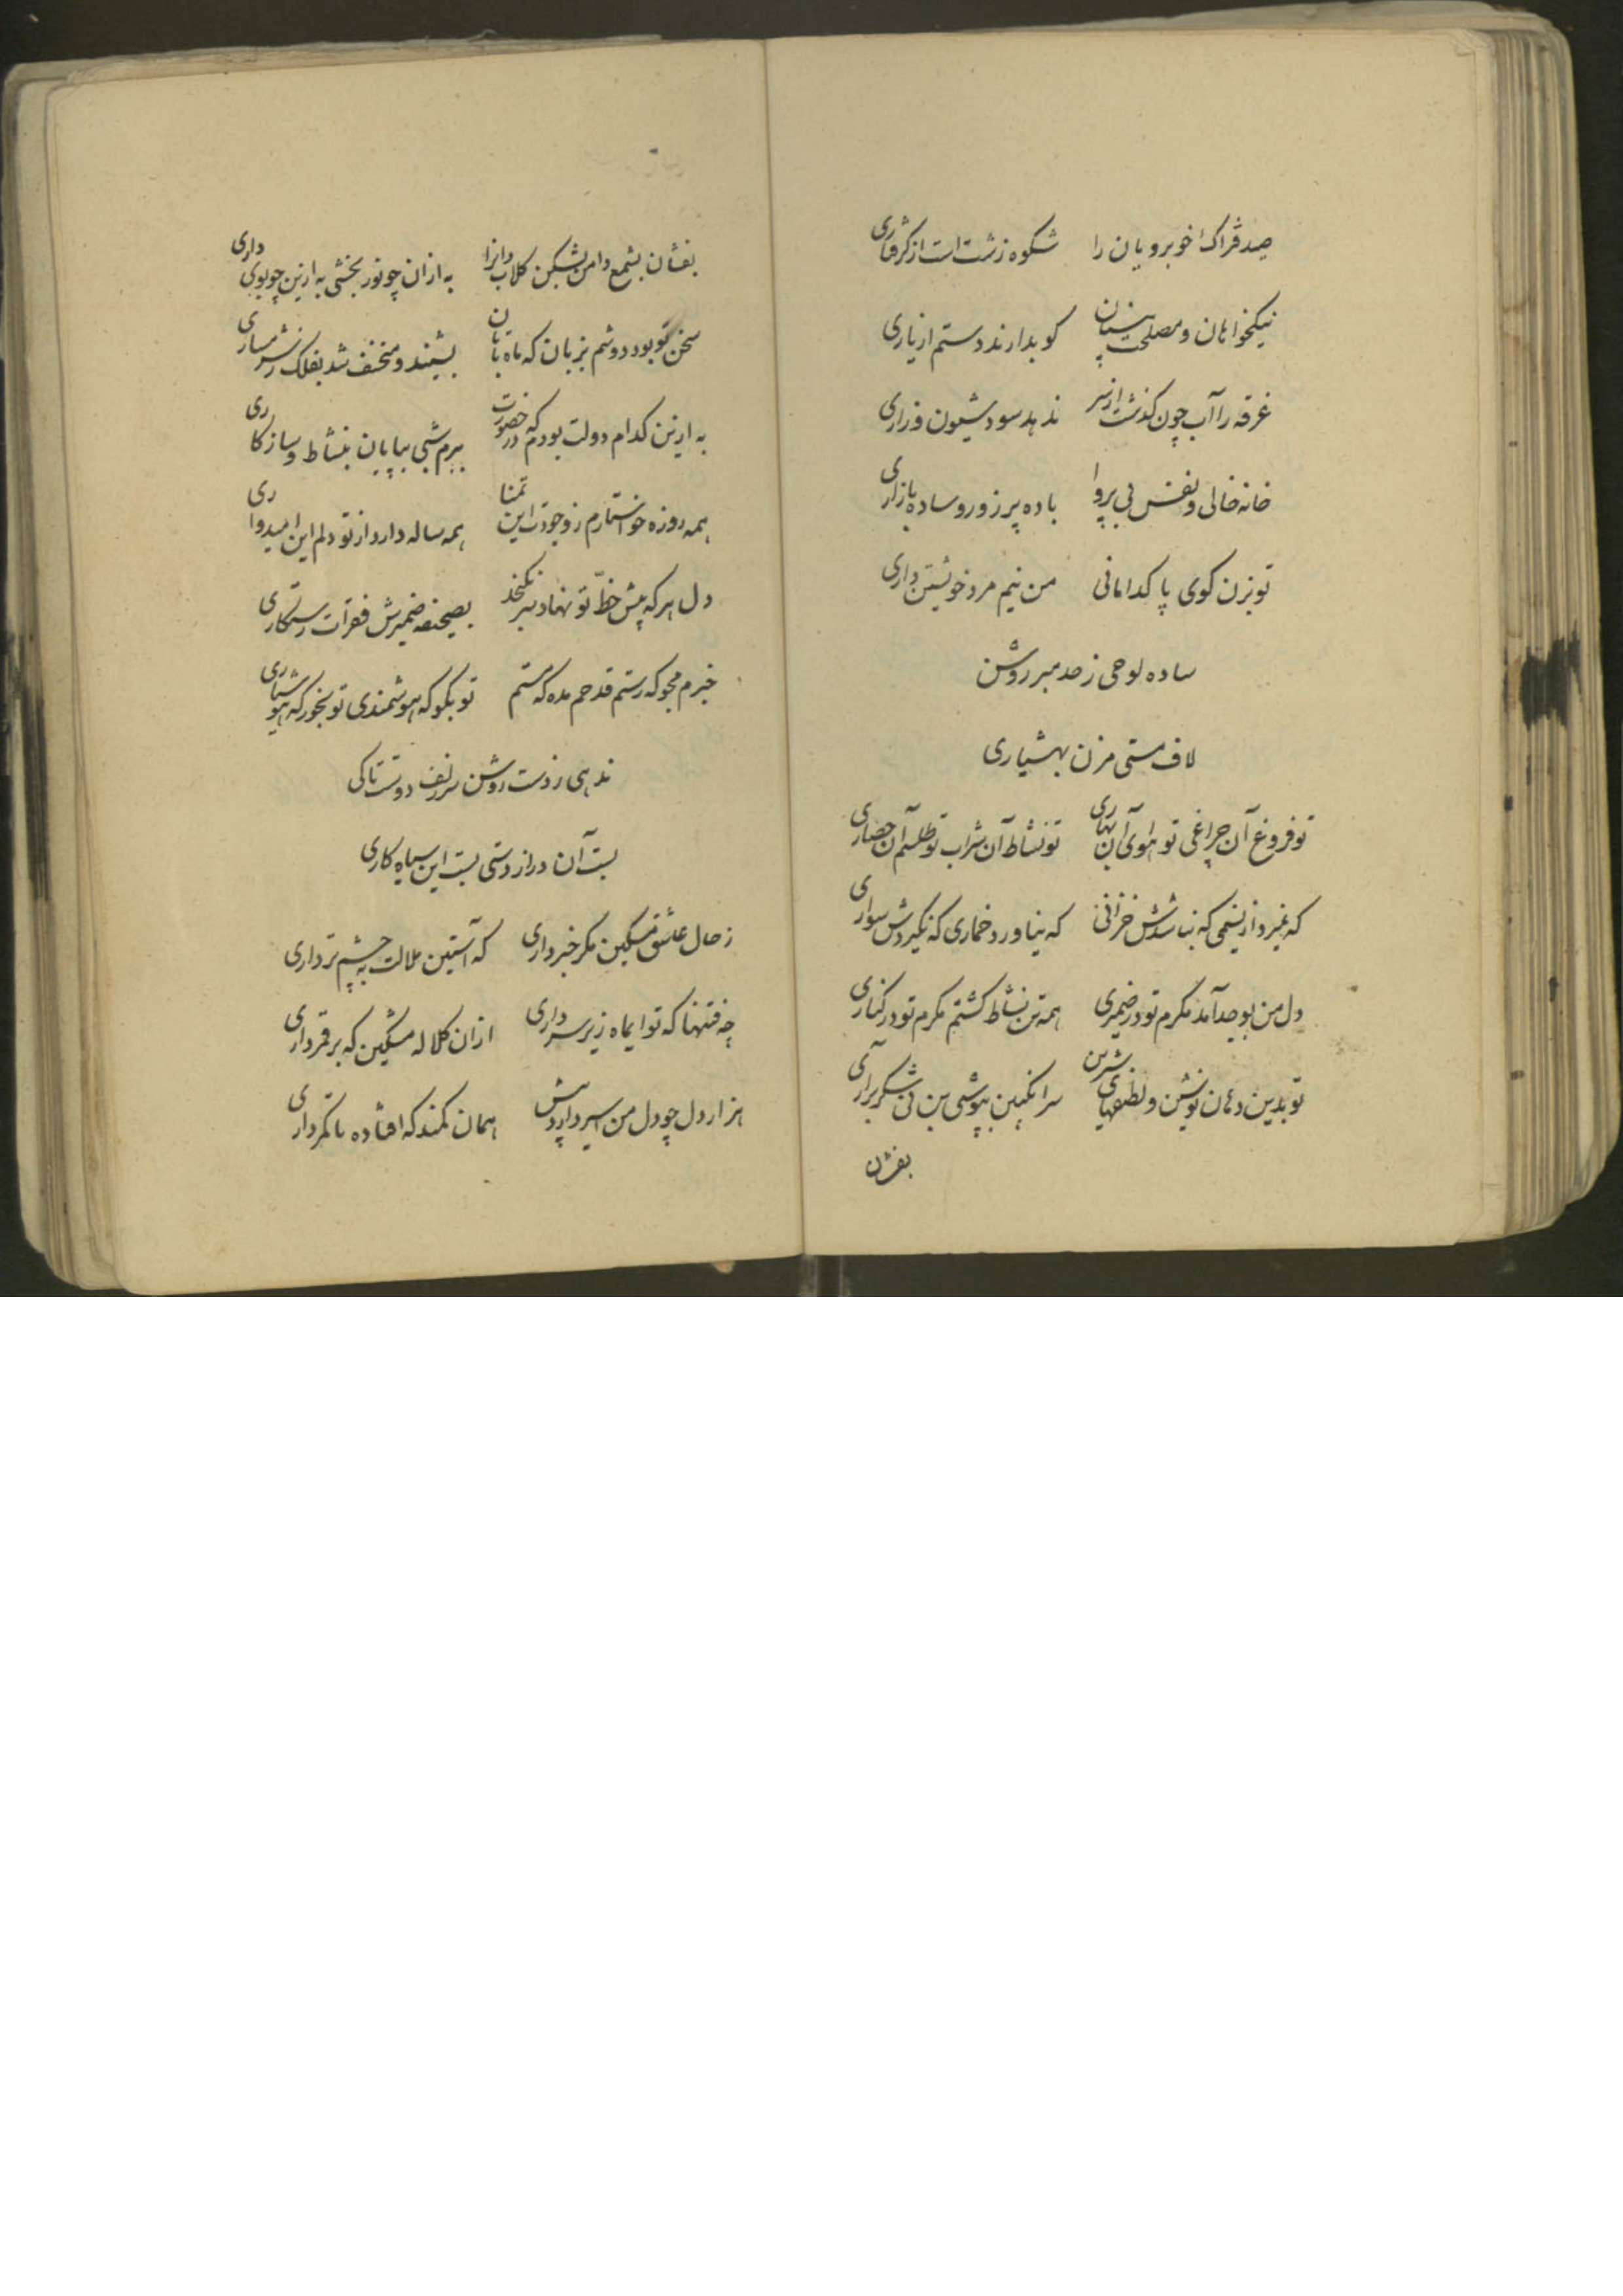 صید فتراک خوبرویان را شکوه زشت است از گرفتاری
نیکخواهان و مصلحت بینان کو بدارند دستم از یاری
غرقه را آب چون گذشت از سر ندهد سود شیون و زاری
خانه خالی و نفس بی پروا باده پر زور و ساده بازاری
تو بزن کوی پاکدامانی من نیم مرد خویشتن داری
ساده لوحی ز حد مبر روشن
لاف مستی مزن بهشیاری
تو فروغ آن چراغی تو هوای آن بهاری تو نشاط آن شراب تو طلسم آن حصاری
که نمیرد از نسیمی که نباشدش خزانی که نیاورد خماری که نگیردش سواری
دل من بوجد آمد مگرم تو در ضمیری همه تن نشاط گشتم مگرم تو در کناری
تو بدین دهان نوشین و لطیفهای شیرین سر انگبین بپوشی بن نی شکر برآری
بفشان
بفشان بشمع دامن بشکن گلاب دانرا به از آن چو نور بخشی به از این چو بوی داری
سخن تو بود دوشم بزبان که ماه تابان بشنید و منخسف شد بفلک ز شرمساری
به از این کدام دولت بودم که در حضورت ببرم شبی بپایان بنشاط و سازکاری
همه روزه خواستارم ز وجودت این تمنا همه ساله دارد از تو دلم این امیدواری
دل هر که پیش خط تو نهاد سر نگنجد بصحیفه ضمیرش فقرات رستکاری
خبرم مجو که رستم قدحم مده که مستم تو بگو که هوشمندی تو بخور که هوشیاری
ندهی ز دست روشن سر زلف دوست تا کی
بست آن دراز دستی بست این سیاه کاری
ز حال عاشق مسکین مگر خبر داری که آستین ملالت به چشم تر داری
چه فتنها که تو ایماه زیر سر داری از آن کلاله مشکین که بر قمر داری
هزار دل چو دل من اسیر دارد همان کمند که افتاده تا کمر داری